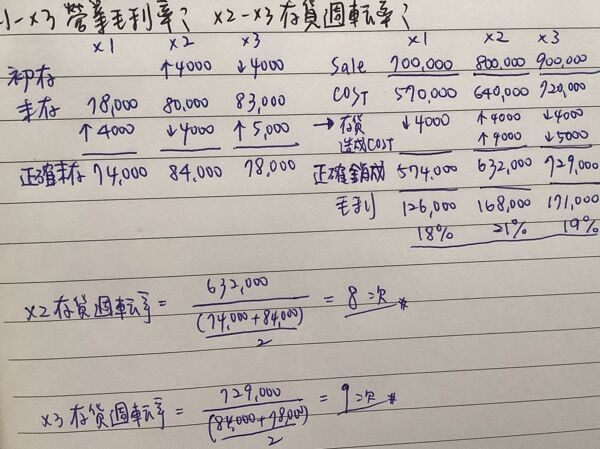 1-x3 營業毛利率? x2-x3存貨週轉率?
x1 x2 x3 x1 x2 x3
初存 ↑4000 ↓4000 Sale 700,000 800,000 900,000
末存 78,000 80,000 83,000 COST 570,000 640,000 720,000
↑4000 ↓4000 ↑5,000 →存貨造成COST ↓4000 ↑4000 ↓4000
↑4000 ↓5000
正確末存 74,000 84,000 78,000 正確銷成 574,000 632,000 729,000
毛利 126,000 168,000 171,000
18% 21% 19%
x2存貨週轉率 = 632,000 / (74,000+84,000) / 2 = 8次*
x3存貨週轉率 = 729,000 / (84,000+78,000) / 2 = 9次*